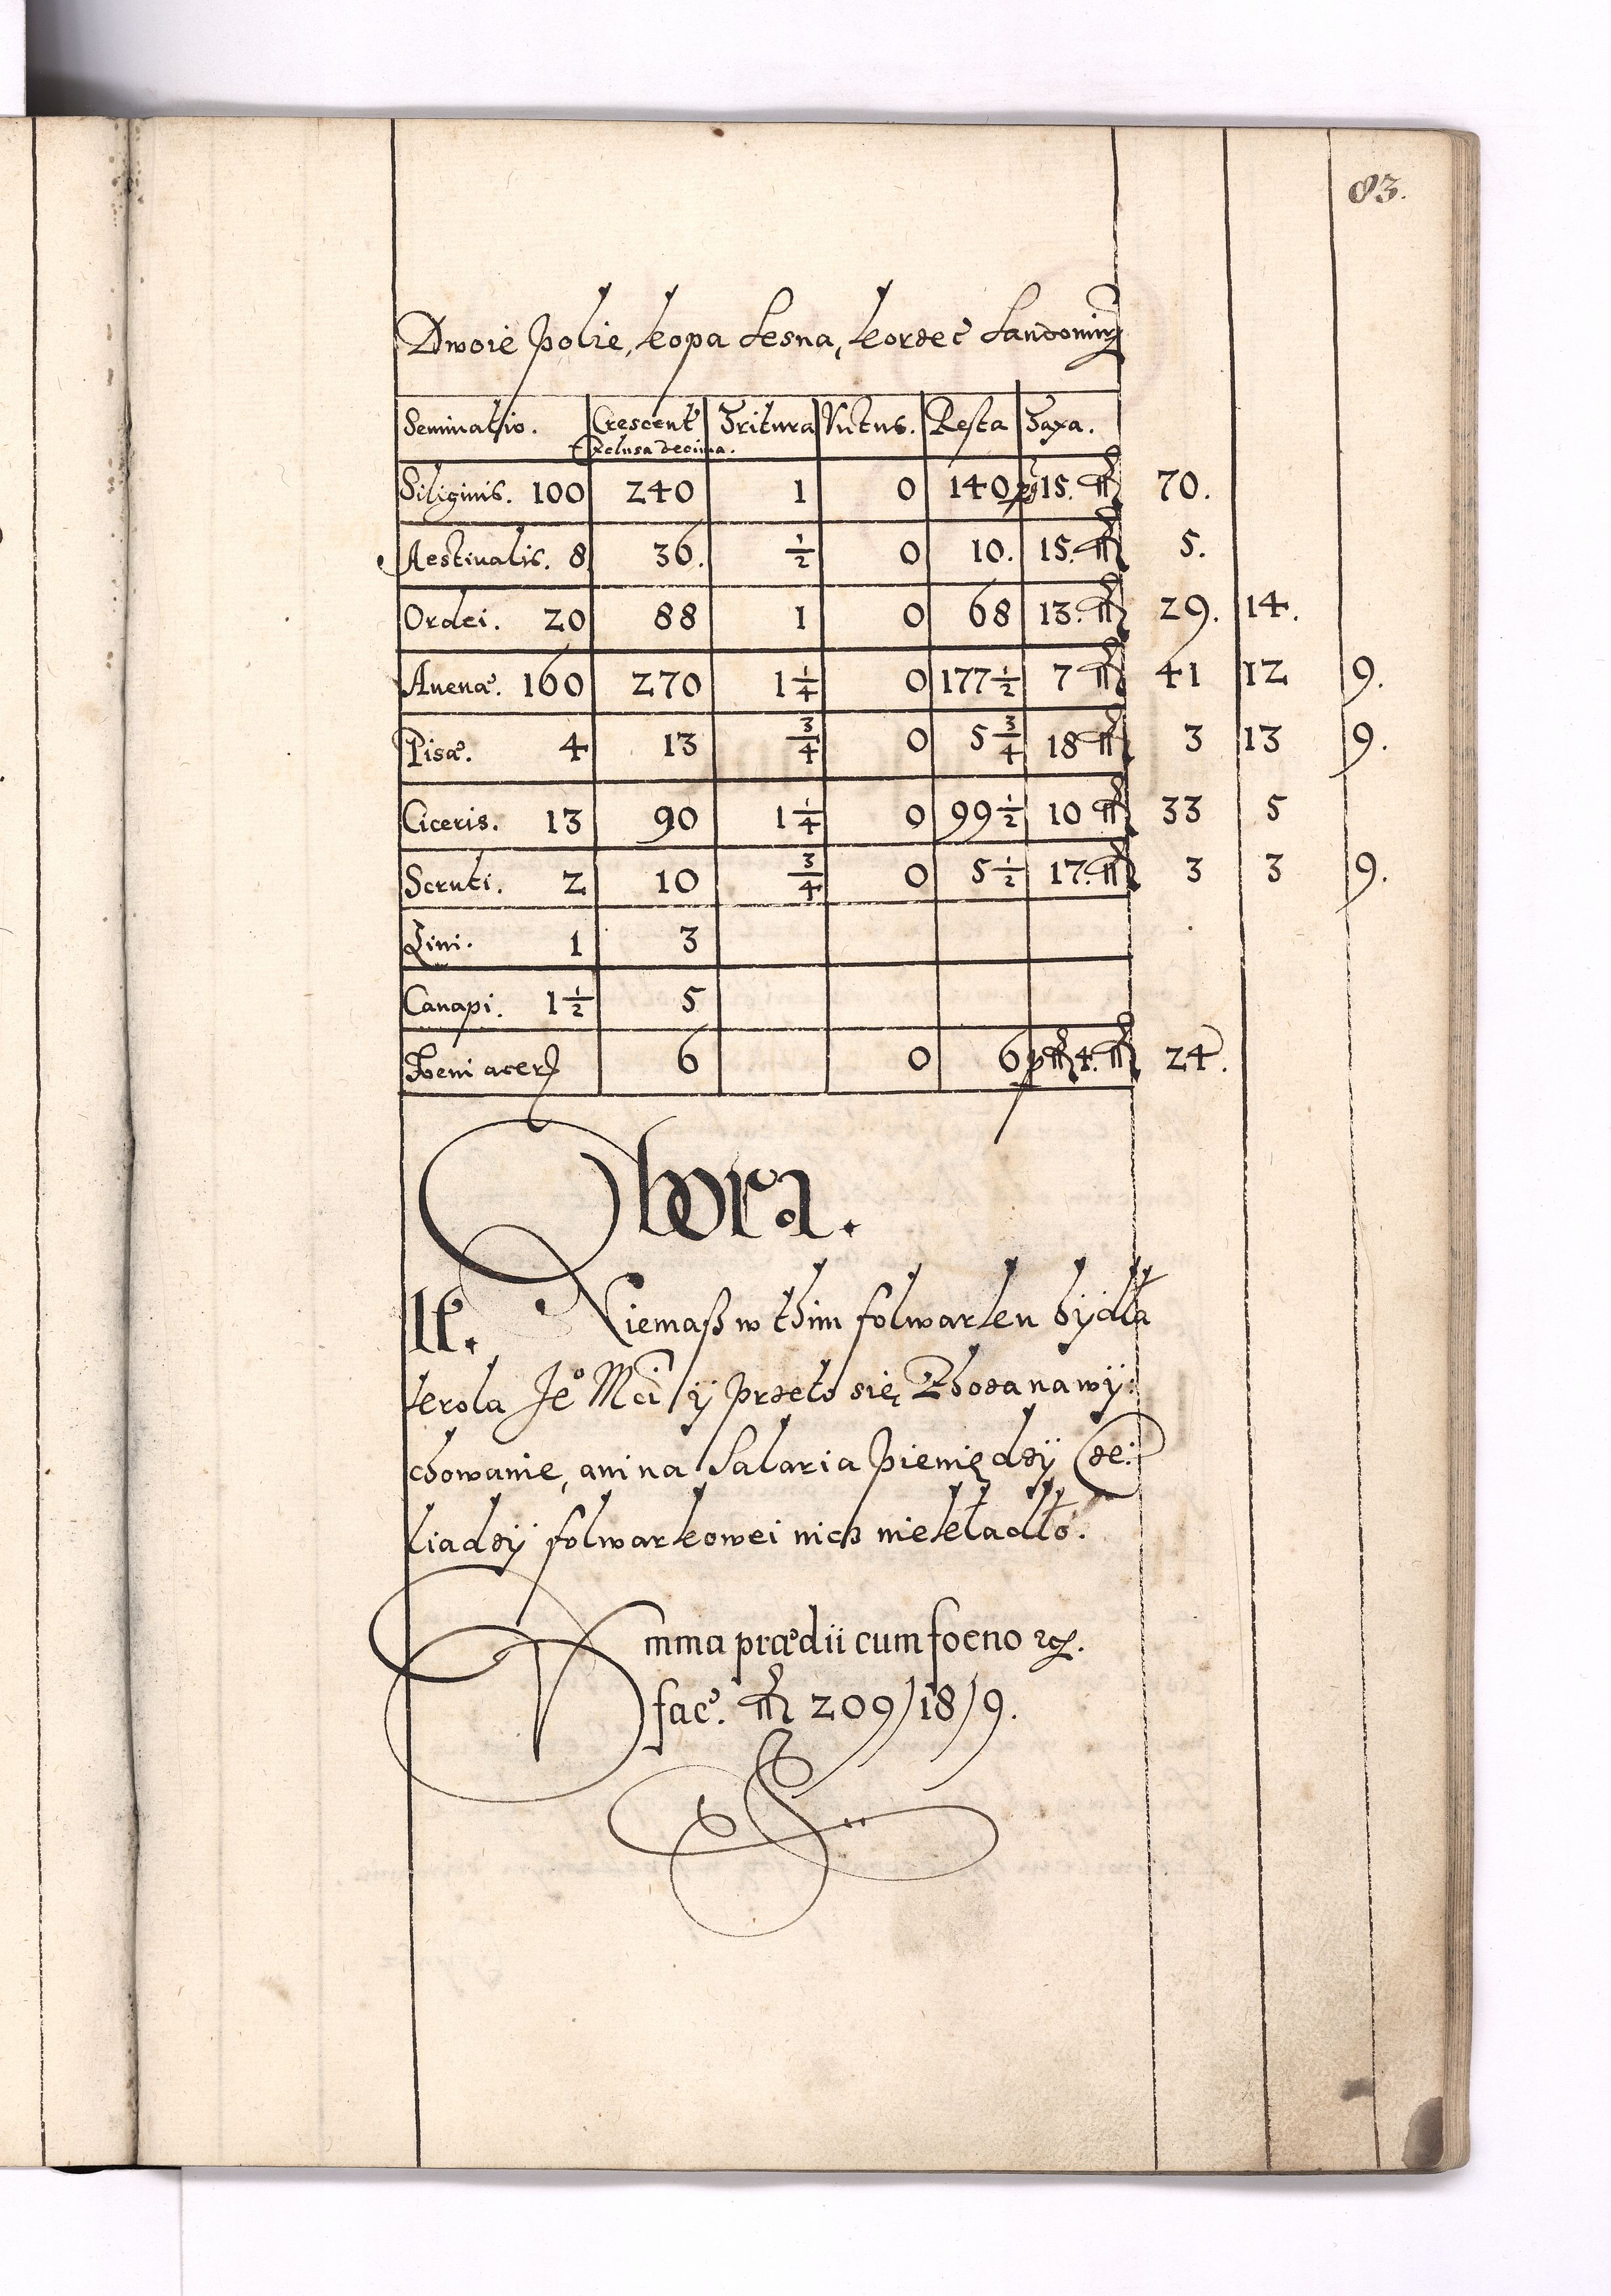 83.
Dwoie polie, kopa Lesna, korzec Sandomirz
Seminatio. Crescent Tritura Victus. Resta Taxa.
Exclusa decima.
Siliginis. 100 240 1 0 140 pg 15. 70.
Aestivalis. 8 36. ½ 0 10. 15. 5.
Ordei. 20 88 1 0 68 13. 29. 14.
Auenæ. 160 270 1¼ 0 177½ 7 41 12 9.
Pisæ. 4 13 ¾ 0 5¾ 18 3 13 9.
Ciceris. 13 90 1¼ 0 99½ 10 33 5
Scruti. 2 10 ¾ 0 5½ 17. 3 3 9.
Lini. 1 3
Canapi. 1½ 5
Foeni acer 6 0 6 p 4. 24.
Obora.
Niemaß w thim folwarku bÿdła
krola Je° Mci ÿ przeto się Zboża na wÿ:
chowanie, ani na Salaria pieniędzÿ Cze:
liadzÿ folwarkowei nich niekładło.
Summa prædii cum foeno
fac. 209/18/9.